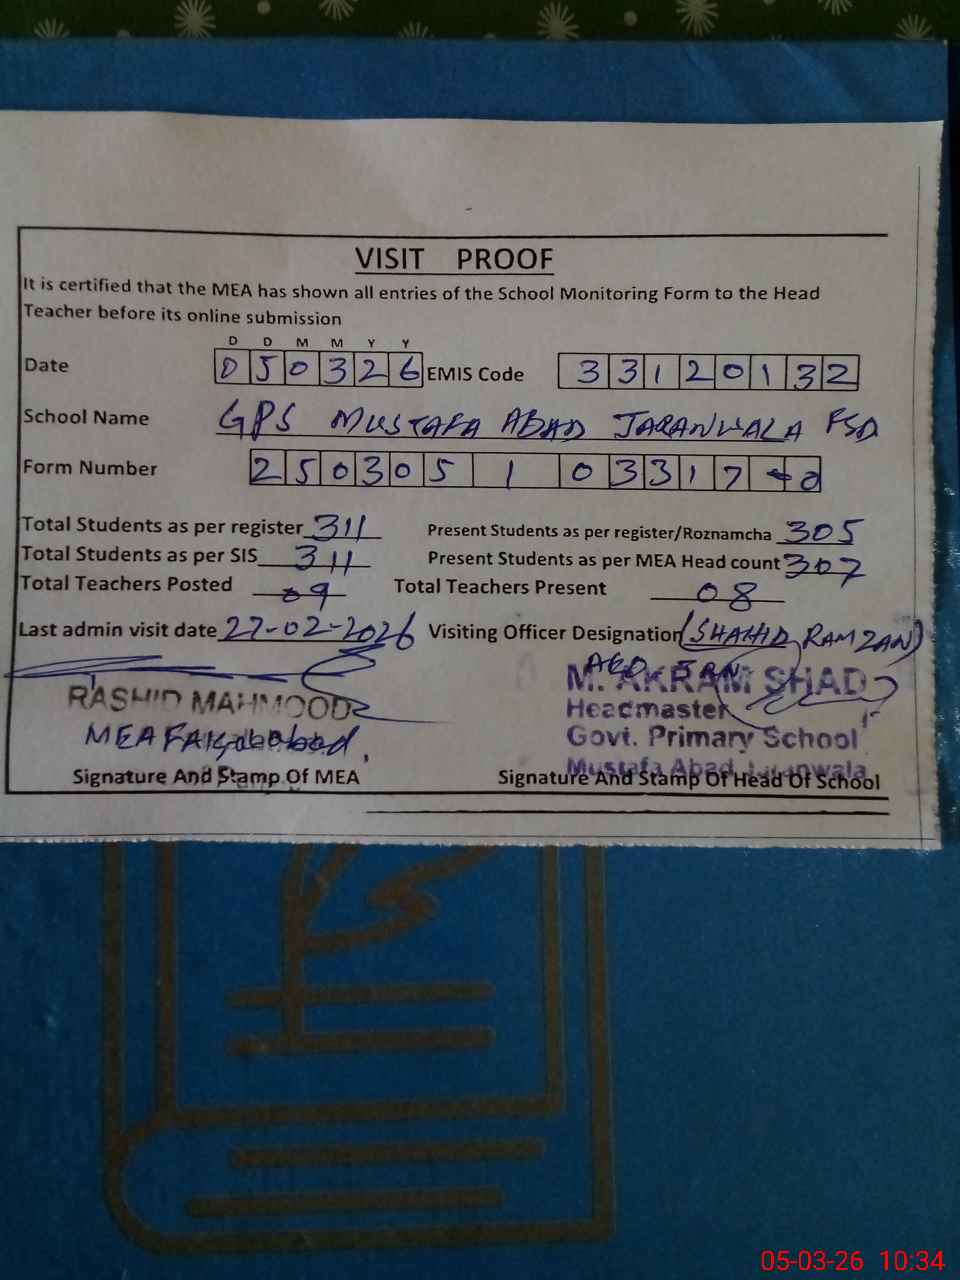 VISIT PROOF
It is certified that the MEA has shown all entries of the School Monitoring Form to the Head
Teacher before its online submission
D D M M Y Y
Date 050326 EMIS Code 33120132
School Name GPS MUSTAFA ABAD JARANWALA FSD
Form Number 250305 1 03317
Total Students as per register 311 Present Students as per register/Roznamcha 305
Total Students as per SIS 311 Present Students as per MEA Head count 307
Total Teachers Posted 09 Total Teachers Present 08
Last admin visit date 27-02-2026 Visiting Officer Designation (SHAHID RAMZAN)
AEO
RASHID MAHMOOD M. AKRAM SHAD
Headmaster
MEA Faisalabad, Govt. Primary School
Mustafa Abad, Jaranwala
Signature And Stamp Of MEA Signature And Stamp Of Head Of School
05-03-26 10:34